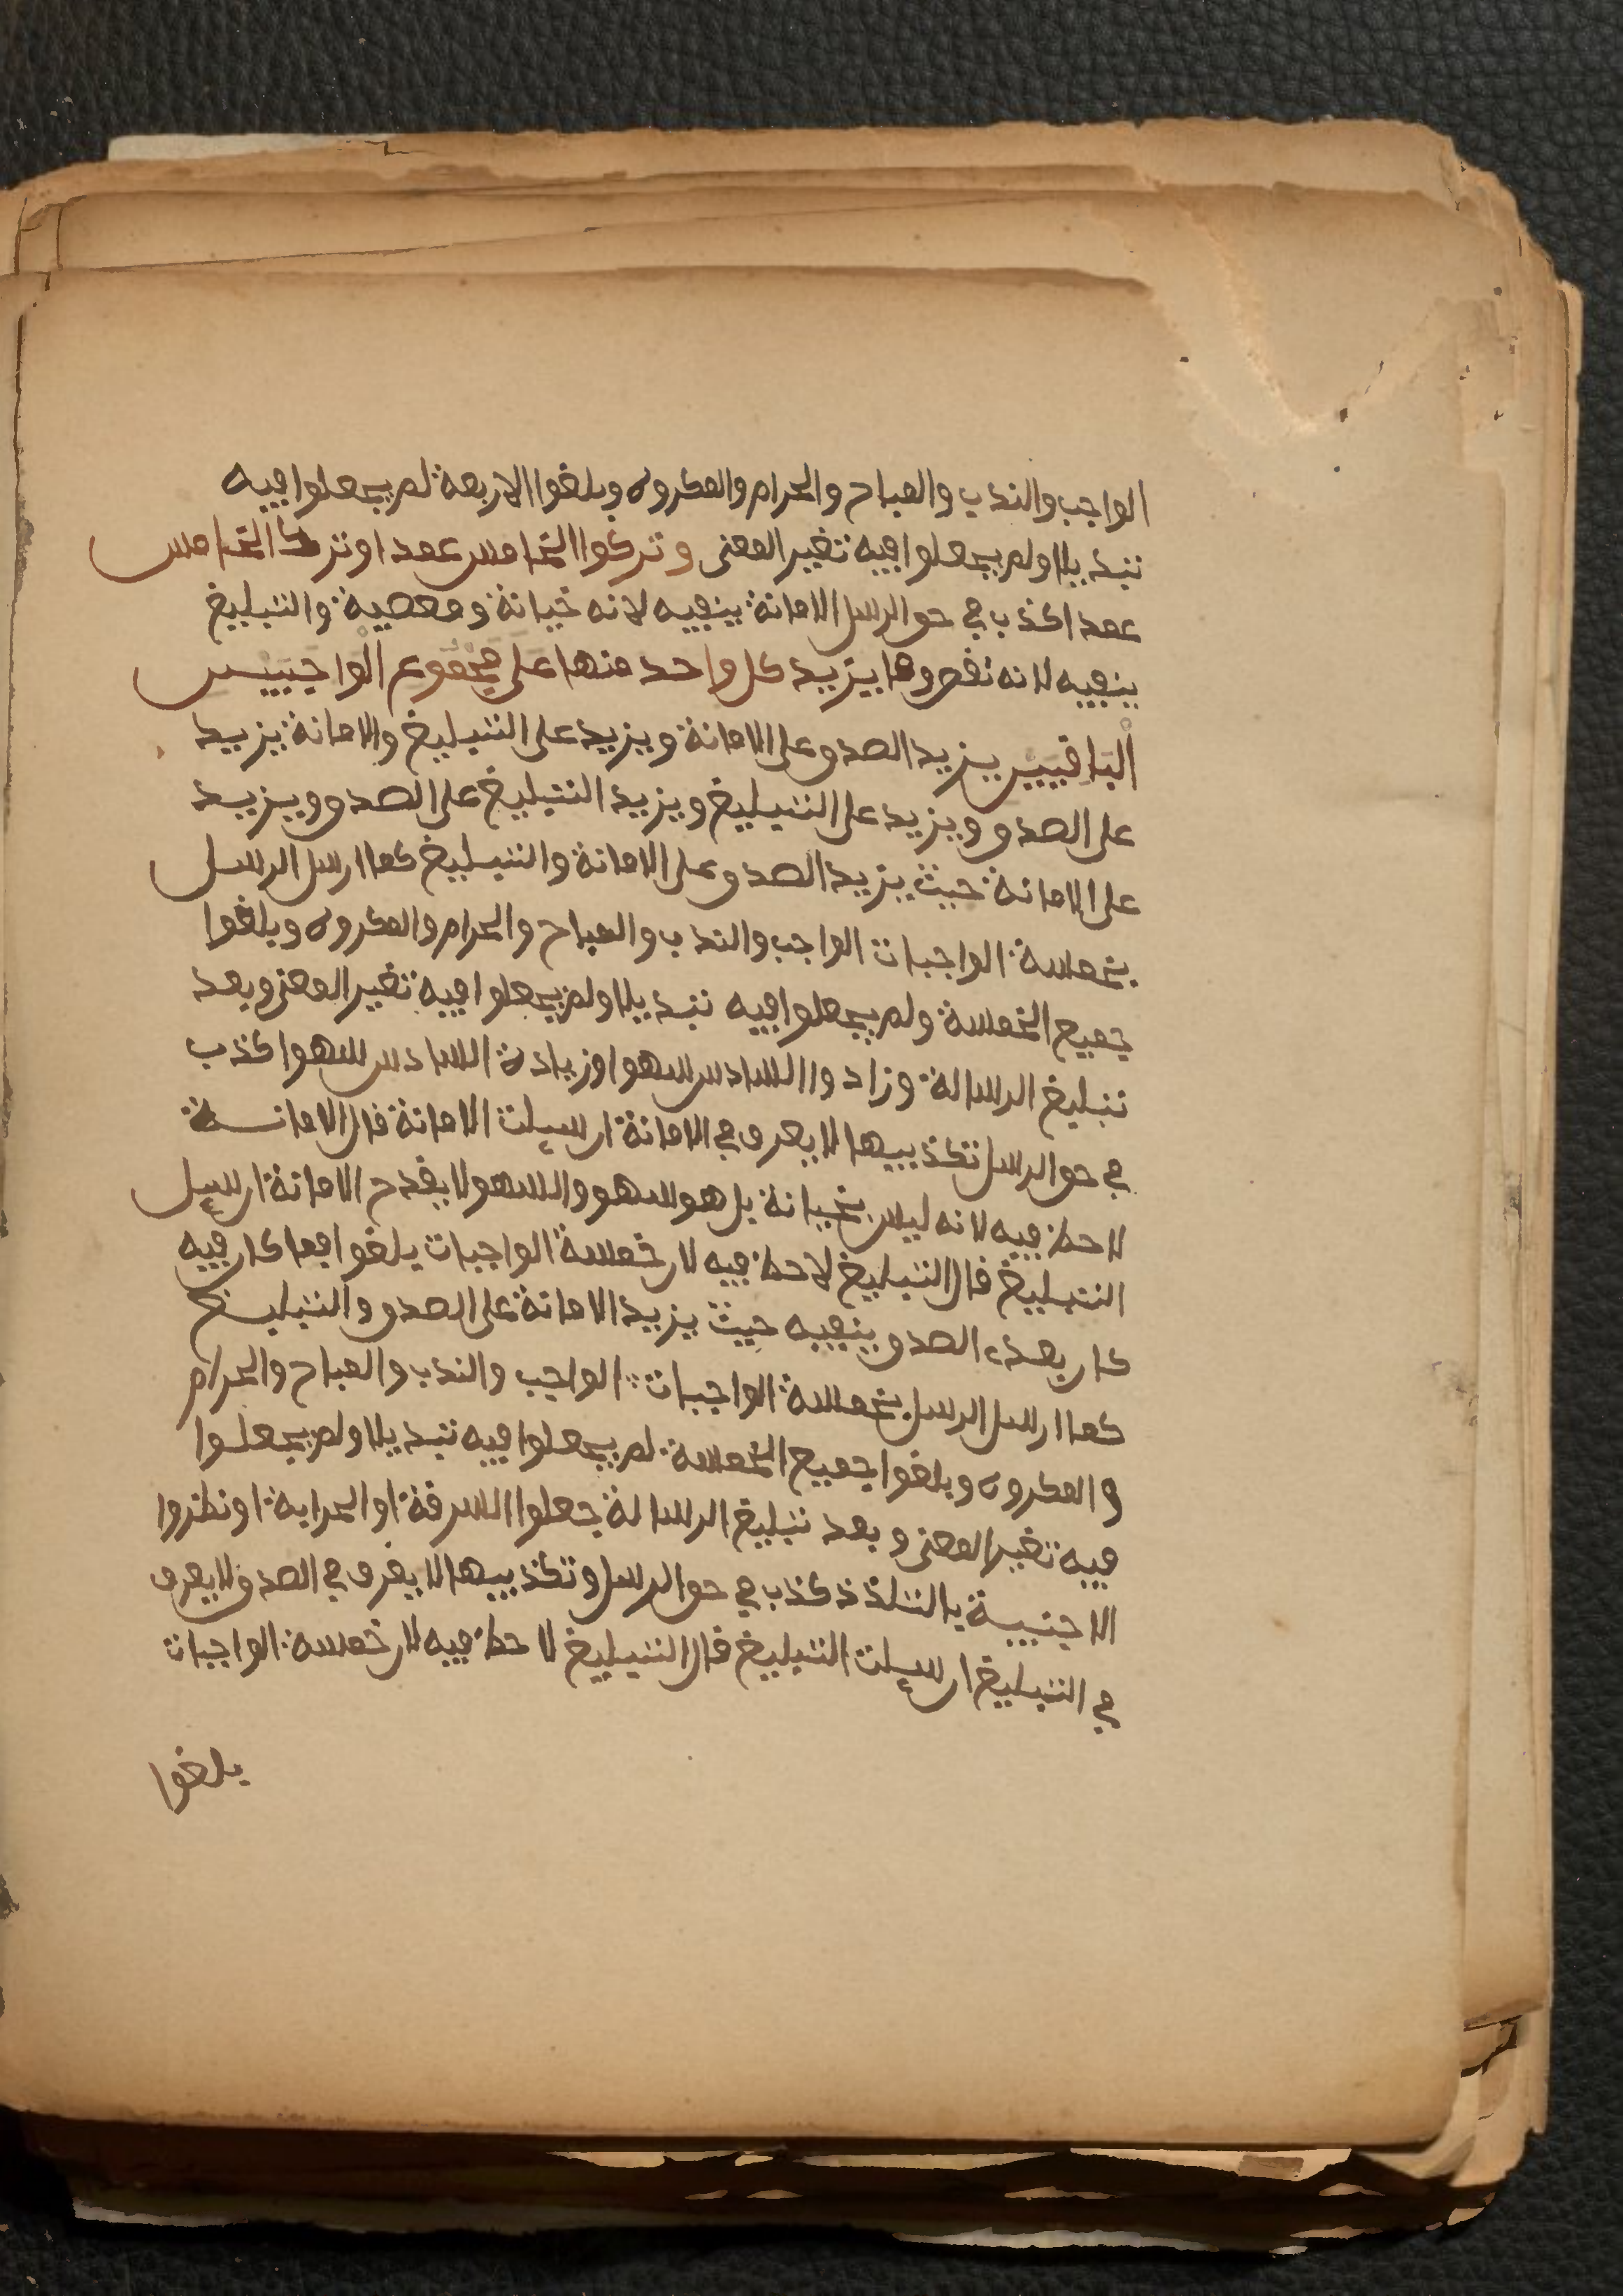 الواجب والندب والمباح والحرام والمكروه وبلغوا الاربعة لم يجعلوا فيه
تبديلا ولم يجعلوا فيه تغير المعنى وتركوا الخامس عمدا وترك الخامس
عمدا كذب في حق الرسل الامانة ينفيه لانه خيانة ومعصية والتبليغ
ينفيه لانه نقص وما يزيد كل واحد منها على مجموع الواجبين
الباقيين يزيد الصدق على الامانة ويزيد على التبليغ والامانة يزيد
على الصدق ويزيد على التبليغ ويزيد التبليغ على الصدق ويزيد
على الامانة حيث يزيد الصدق على الامانة والتبليغ كما ارسل الرسل
بخمسة الواجبات الواجب والندب والمباح والحرام والمكروه وبلغوا
جميع الخمسة ولم يجعلوا فيه تبديلا ولم يجعلوا فيه تغير المعنى وبعد
تبليغ الرسالة وزادوا السادس سهوا وزيادة السادس سهوا كذب
في حق الرسل تكذيبها لا يعرف في الامانة ان سيلت الامانة قال الامانة
لا حظ فيه لانه ليس بخيانة بل هو سهو والسهو لا يقدح الامانة ان سيل
التبليغ قال التبليغ لا حظ فيه لان خمسة الواجبات بلغوا فما كان فيه
كان بعده الصدق ينفيه حيث يزيد الامانة على الصدق والتبليغ
كما ارسل الرسل بخمسة الواجبات الواجب والندب والمباح والحرام
والمكروه وبلغوا جميع الخمسة لم يجعلوا فيه تبديلا ولم يجعلوا
فيه تغير المعنى وبعد تبليغ الرسالة جعلوا السرقة او الحرابة او نظروا
الاجنبية بالتلذذ كذب في حق الرسل وتكذيبها لا يعرف في الصدق ولا يعرف
في التبليغ ان سيلت التبليغ قال التبليغ لا حظ فيه لان خمسة الواجبات
بلغوا